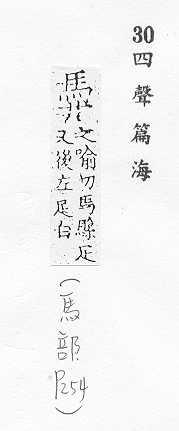 30 四聲篇海
之喻切馬縣足
又後左足白
(馬部 P254)